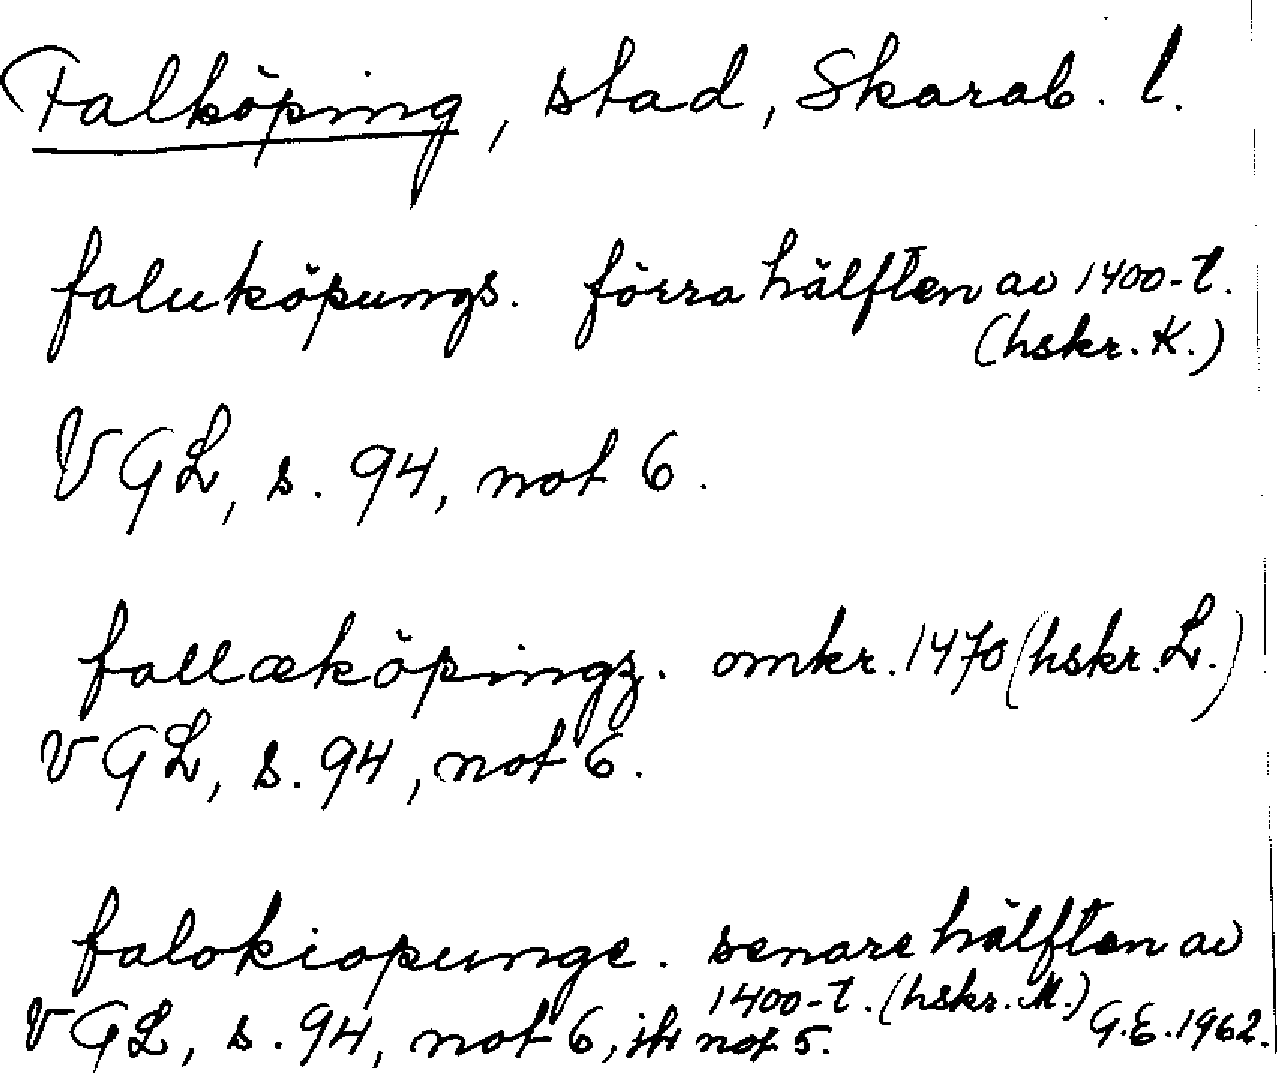 Falköping, stad, Skarab. l.
faluköpungs. förra hälften av 1400-t.
(hskr. K.)
VGL, s. 94, not 6.
fallæköpingz. omkr. 1470 (hskr. L.)
VGL, s. 94, not 6.
falokiopunge. senare hälften av
1400-t. (hskr. M.)
VGL, s. 94, not 6, jfr not 5. G.E. 1962.